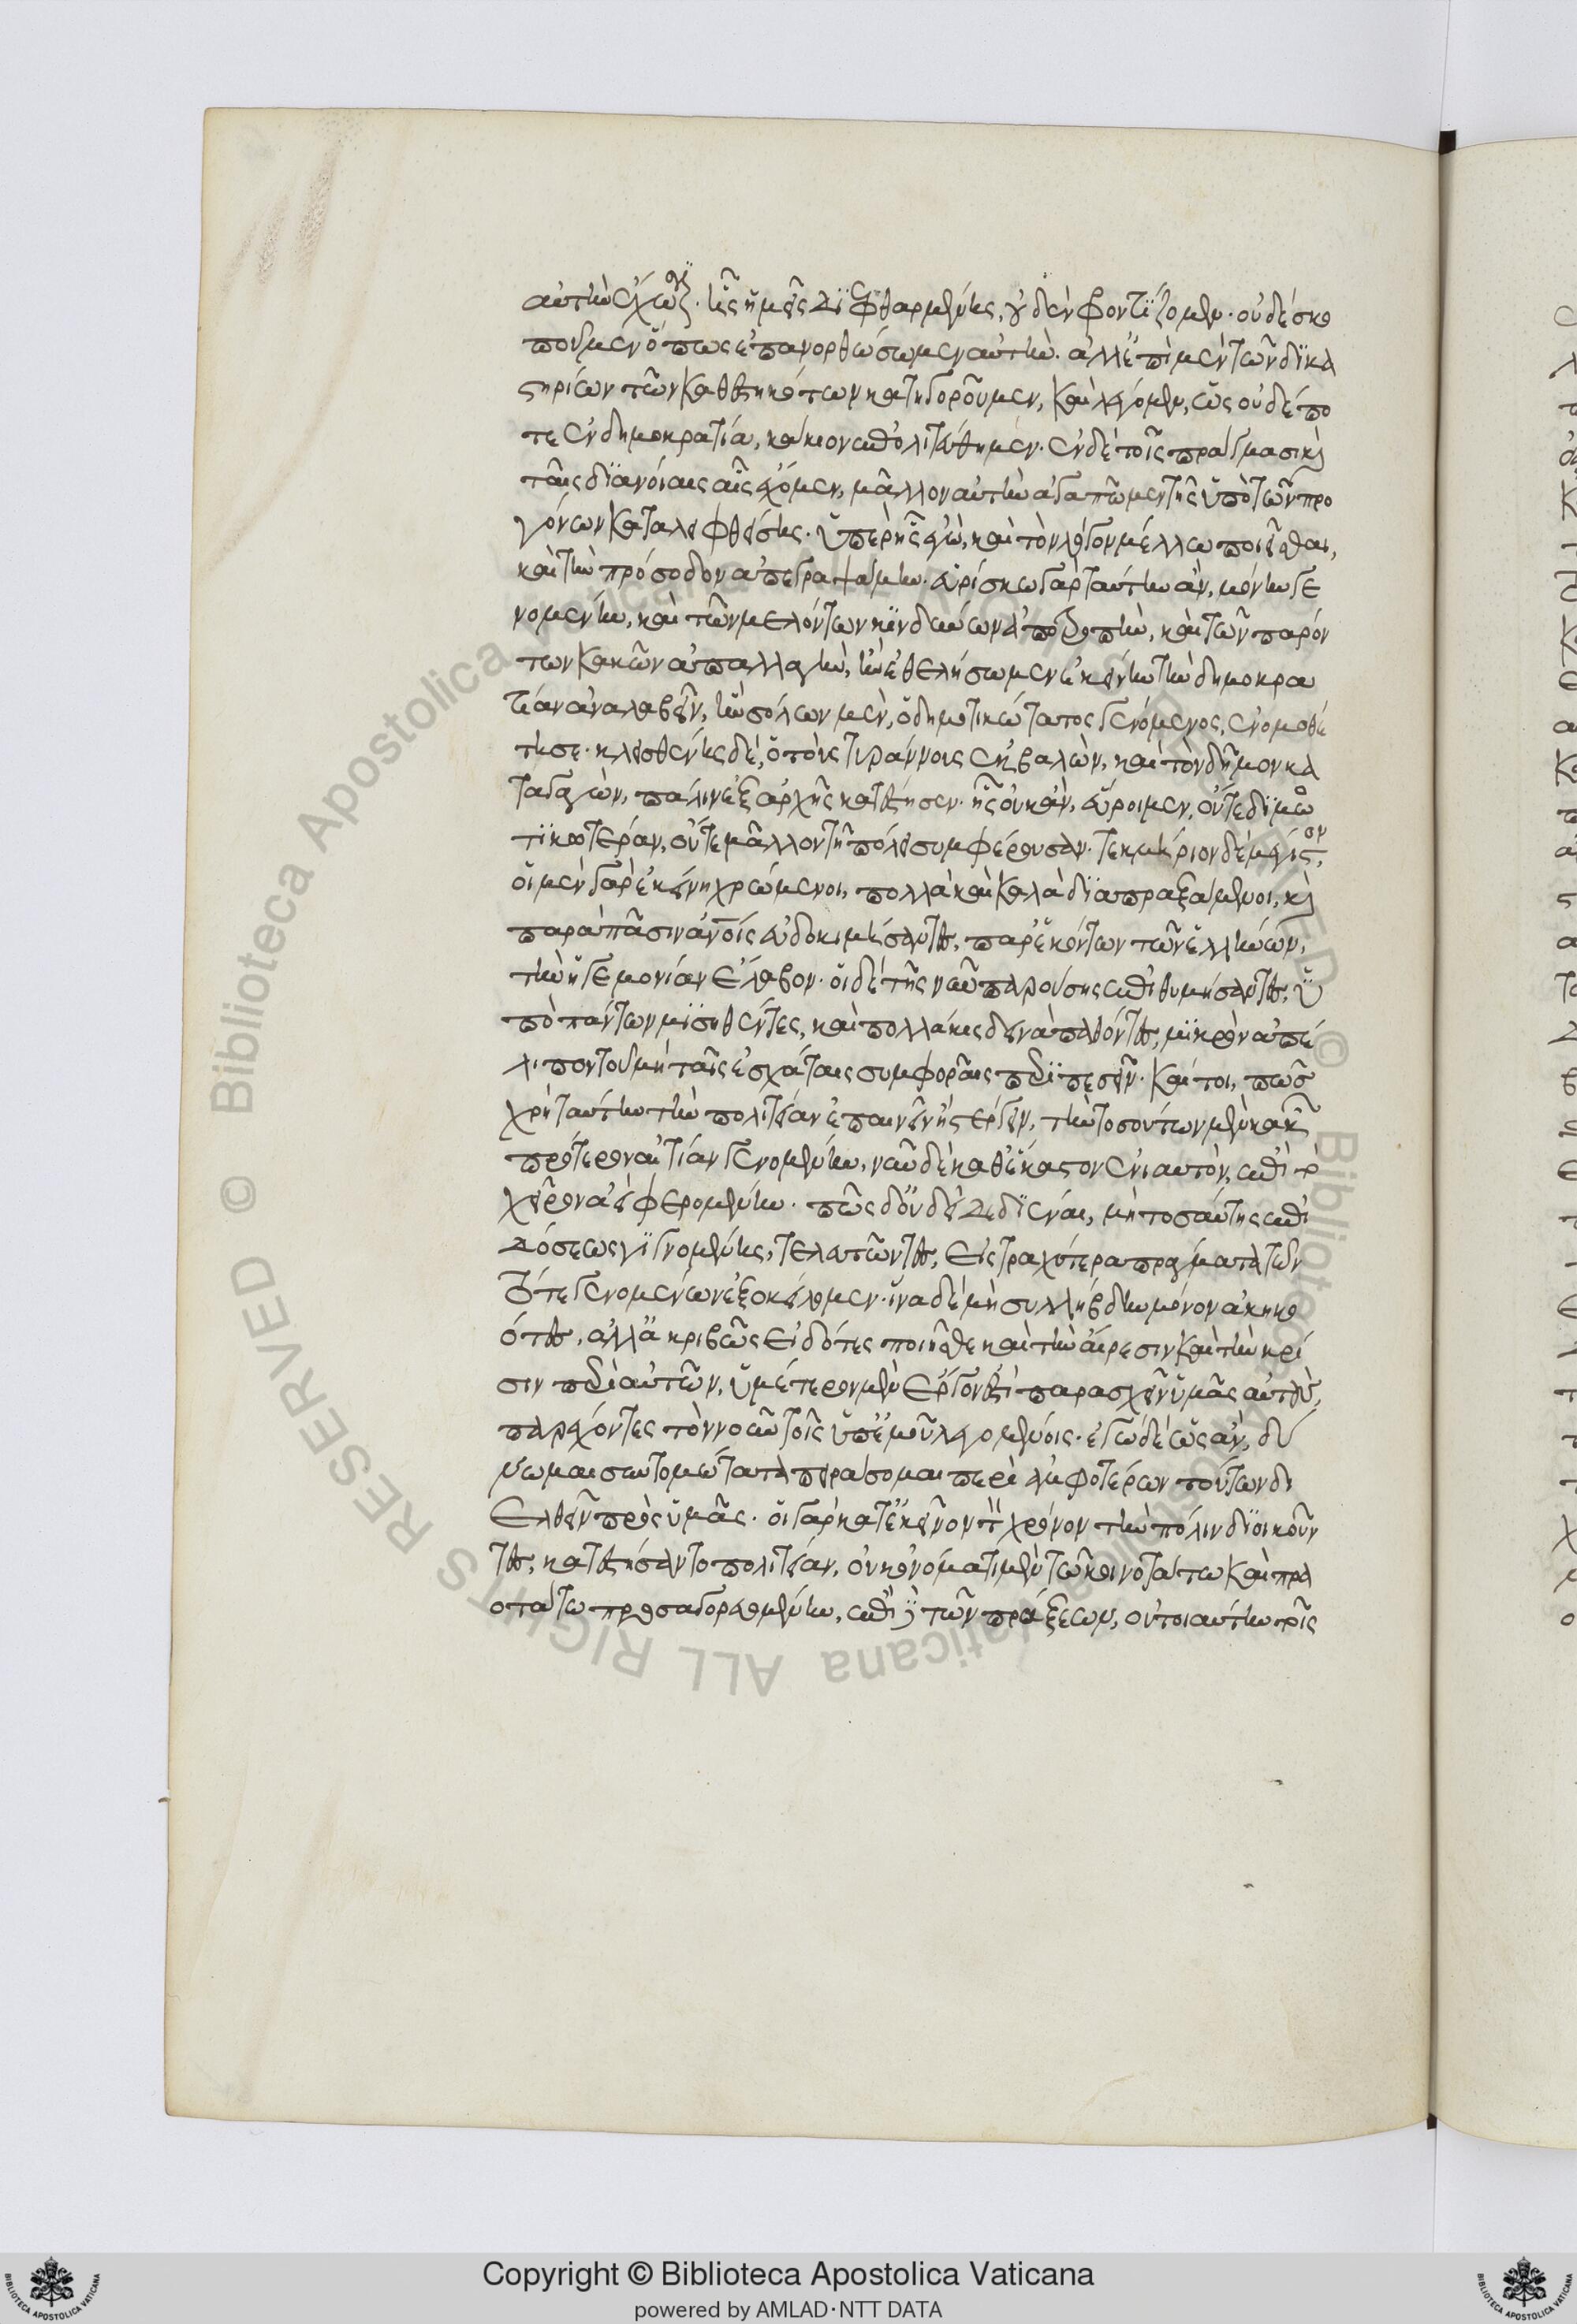 αὐτὴν ἔχωσι. ἧς ἡμεῖς διεφθαρμένης, οὐδὲν φροντίζομεν. οὐδὲ σκο
ποῦμεν ὅπως ἐπανορθώσωμεν αὐτήν. ἀλλ' ἐπὶ μὲν τῶν δικα
στηρίων τῶν καθεστηκότων κατηγοροῦμεν, καὶ λέγομεν, ὡς οὐδέπο
τε ἐν δημοκρατία, κάκιον ἐπολιτεύθημεν. ἐν δὲ τοῖς πράγμασι καὶ
ταῖς διανοίαις αἷς ἔχομεν, μᾶλλον αὐτὴν ἀγαπῶμεν τῆς ὑπὸ τῶν προ
γόνων καταλειφθείσης. ὑπὲρ ἧς ἐγὼ, καὶ τὸν λόγον μέλλω ποιεῖσθαι,
καὶ τὴν πρόσοδον ἀπεγραψάμην. εὑρίσκω γὰρ ταύτην ἂν, μόνην γε
νομένην, καὶ τῶν μελόντων κινδύνων ἀποτροπὴν, καὶ τῶν παρόν
των κακῶν ἀπαλλαγὴν, ἢν ἐθελήσωμεν ἐκείνην τὴν δημοκρα
τίαν ἀναλαβεῖν, ἣν σόλων μὲν, ὁ δημοτικώτατος γενόμενος, ἐνομοθέ
τησε. κλεισθένης δὲ, ὁ τοὺς τυράννους ἐκβαλὼν, καὶ τὸν δῆμον κα
ταγαγὼν, πάλιν ἐξ ἀρχῆς κατέστησεν. ἧς οὐκ ἂν, εὕροιμεν, οὔτε δημο
τικωτέραν, οὔτε μᾶλλον τῇ πόλει συμφέρουσαν. τεκμήριον δὲ μέγιστον,
οἱ μὲν γὰρ ἐκείνη χρώμενοι, πολλὰ καὶ καλὰ διαπραξάμενοι, καὶ
παρὰ πᾶσιν ἀνοις εὐδοκιμήσαντες, παρ' ἑκόντων τῶν ἑλλήνων,
τὴν ἡγεμονίαν ἔλαβον. οἱ δὲ τῆς νῦν παρούσης ἐπιθυμήσαντες, ὑ
πὸ πάντων μισηθέντες, καὶ πολλάκις δεινὰ παθόντες, μικρὸν ἀπέ
λιπον τοῦ μὴ ταῖς ἐσχάταις συμφοραῖς περιπεσεῖν. καί τοι, πῶς
χρὴ ταύτην τὴν πολιτείαν ἐπαινεῖν ἢ στέργειν, τὴν τοσούτων μὲν κακῶν
πρότερον αἰτίαν γενομένην, νῦν δὲ καθ' ἕκαστον ἐνιαυτὸν, ἐπὶ τὸ
χεῖρον ἀεὶ φερομένην. πῶς δ' οὐ δεῖ δεδιέναι, μὴ τοσαύτης ἐπι
δόσεως γιγνομένης, τελευτῶντες, εἰς τραχύτερα πράγματα τῶν
τότε γενομένων ἐξοκείλωμεν. ἵνα δὲ μὴ συλλήβδην μόνον ἀκηκο
ότες, ἀλλ' ἀκριβῶς εἰδότες ποιῆσθε καὶ τὴν αἵρεσιν καὶ τὴν κρί
σιν περὶ αὐτῶν, ὑμέτερον μὲν ἔργον ἐστὶ παρασχεῖν ὑμᾶς αὐτοὺς,
παρέχοντες τὸν νοῦν τοῖς ὑπ' ἐμοῦ λεγομένοις. ἐγὼ δὲ ὡς ἂν, δύ
νωμαι συντομώτατα πειράσομαι περὶ ἀμφοτέρων τούτων δι
ελθεῖν πρὸς ὑμᾶς. οἱ γὰρ κατ' ἐκεῖνον τὸν χρόνον τὴν πόλιν διοικοῦν
τες, κατεστήσαντο πολιτείαν, οὐκ ὀνόματι μὲν τῶ κοινοτάτω καὶ πρα
οτάτω προσαγορευομένην, ἐπὶ δὲ τῶν πράξεων, οὐ τοιαύτην τοῖς